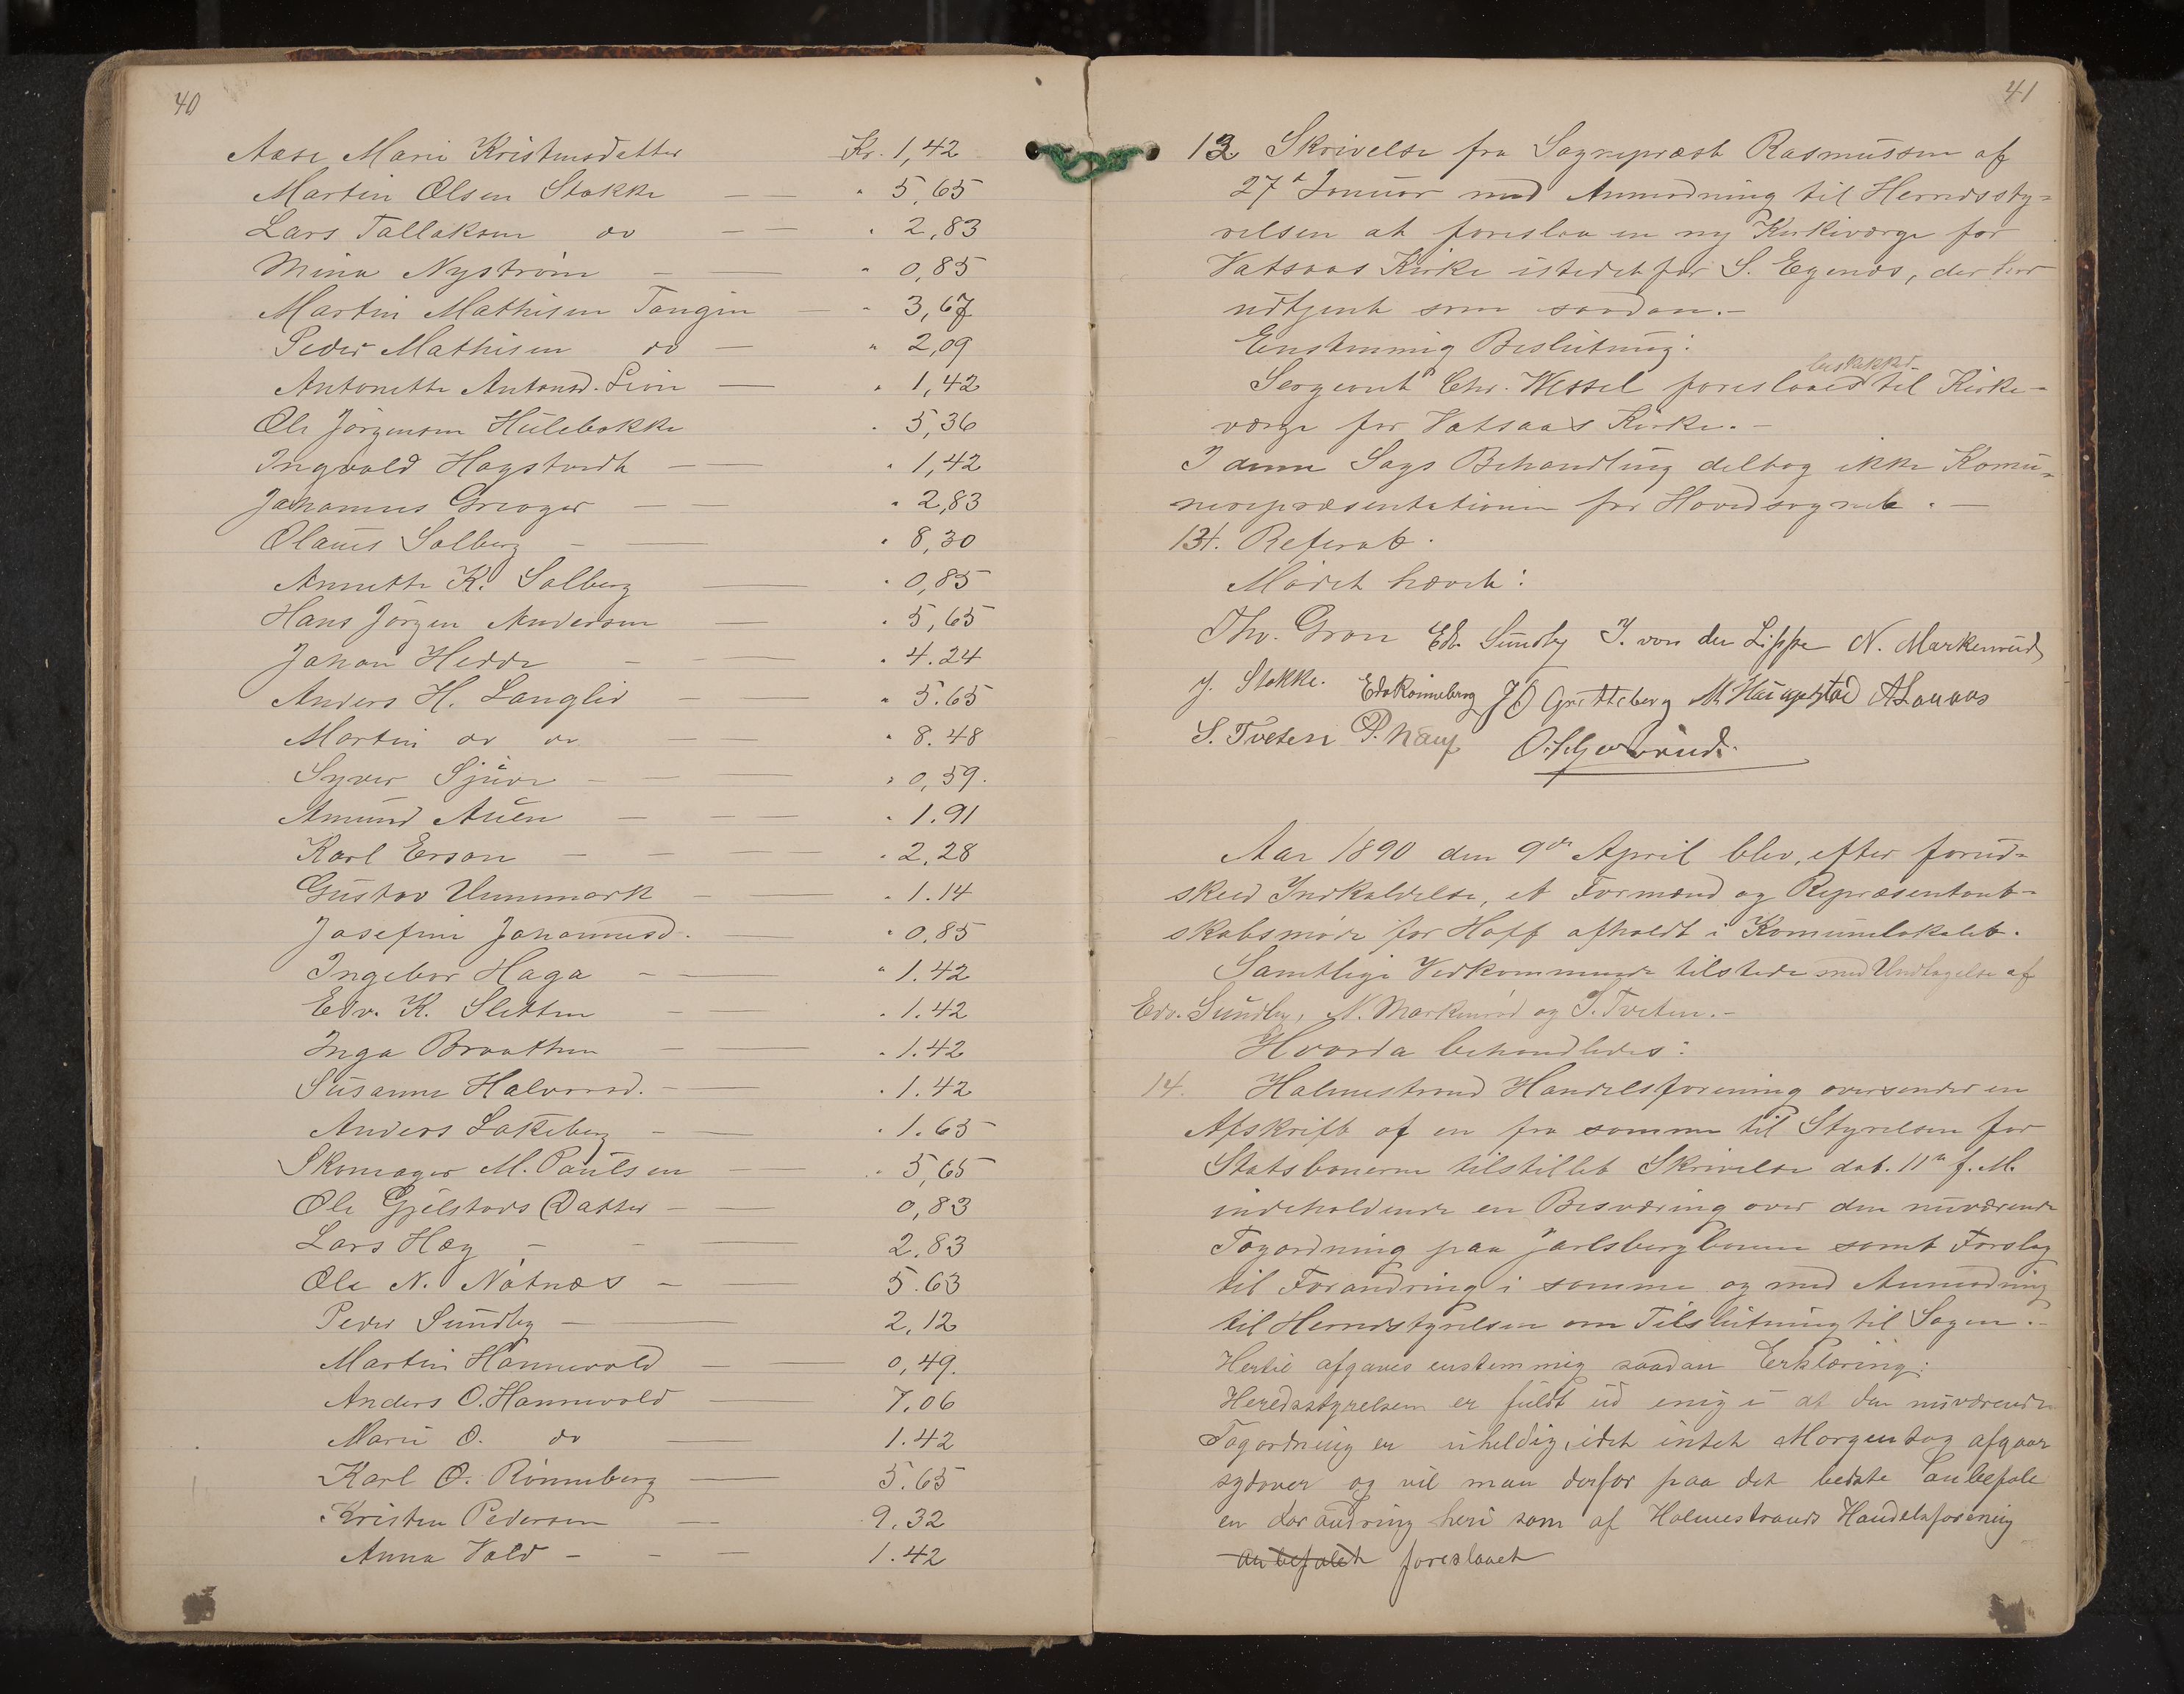 40
Aase Marie Kristensdatter Kr. 1,42
Martin Olsen Stokke — — " 5,65
Lars Tallaksen do — — " 2,83
Mina Nyström — — " 0,85
Martin Mathisen Tangen — " 3,67
Peder Mathisen do — " 2,09
Antonette Antonsd. — " 1,42
Ole Jörgensen Hülebakke " 5,36
Ingvald Hagstvedt — — " 1,42
Johannes Greager — — " 2,83
Olaues Solberg — — " 8,30
Annette K. Solberg — " 0,85
Hans Jörgen Andersen — " 5,65
Johan Hedde — — — " 4.24
Anders H. Langlid — — " 5.65
Martin do do — — " 8.48
Syver Sjüve — — — " 0,59.
Amund Aüen — — — " 1.91
Karl Erson — — — " 2,28
Gustav Ummmark — — " 1.14
Josefine Johannesd. — " 0,85
Ingebor Haga — — " 1.42
Edv. K. Sletten — — " 1.42
Inga Braathen — — " 1.42
Susanne Halvorsd. — — " 1.42
Anders Løkeberg — — " 1.65
Skomager M. Paulsen — " 5,65
Ole Gjelstads Datter — — 0,83
Lars Hæg — — — 2.83
Ole N. Nøtnæs — — 5.63
Peder Sundby — — 2,12
Martin Hannevold — — 0,49.
Anders O. Hannevold — 7,06
Marie O. do — 1.42
Karl O. Rönneberg — 5.65
Kristen Pedersen — 9,32
Anna Vold — — — 1.42
41
13 Skrivelse fra Sognepræst Rasmussen af
27de Januar med Anmodning til Herredssty-
relsen at foreslaa en ny Kirkeværge for
Vatsaas Kirke istedetfor S. Egenæs, der har
udtjent som saadan. —
Enstemmig Beslutning:
beskikket
Sergeant Chr. Wessel foreslaaes til Kirke-
værge for Vatsaas Kirke. —
I denne Sags Behandling deltog ikke Komu-
nerepræsentationen for Hovedsognet. —
131. Referat.
Mødet hævet:
Thv. Gran Edv. Sundby J. von der Lippe N. Markerud
J. Stokke. Edv Rönneberg J O Gretteberg M. Haugestad A Lauaas
S. Tveten P. Nauf
Aar 1890 den 9de April blev, efter forud-
skeed Indkaldelse, et Formænd og Repræsentant-
skabsmøde for Hoff afholdt i Komunelokalet.
Samtlige Vedkommende tilstede med Undtagelse af
Edv. Sundby, N. Markerud og S. Tveten. —
Hvorda behandledes:
14. Holmestrand Handelsforening oversender en
Afskrift af en fra samme til Styrelsen for
Statsbanerne tilstillet Skrivelse dat. 11te f. M.
indeholdende en Besværing over den nuværende
Togordning paa Jarlsbergbanen samt Forslag
til Forandring i samme og med Anmodning
til Herredstyrelsen om Tilslutning til Sagen. —
Hertil afgaves enstemmig saadan Erklæring:
Heredsstyrelsen er fuldt ud enig i at den nuværende
Togordning er uheldig, idet intet Morgentog afgaar
sydover og vil man derfor paa det bedste anbefale
en forandring heri som af Holmestrands Handelsforening
anbefalet foreslaaet